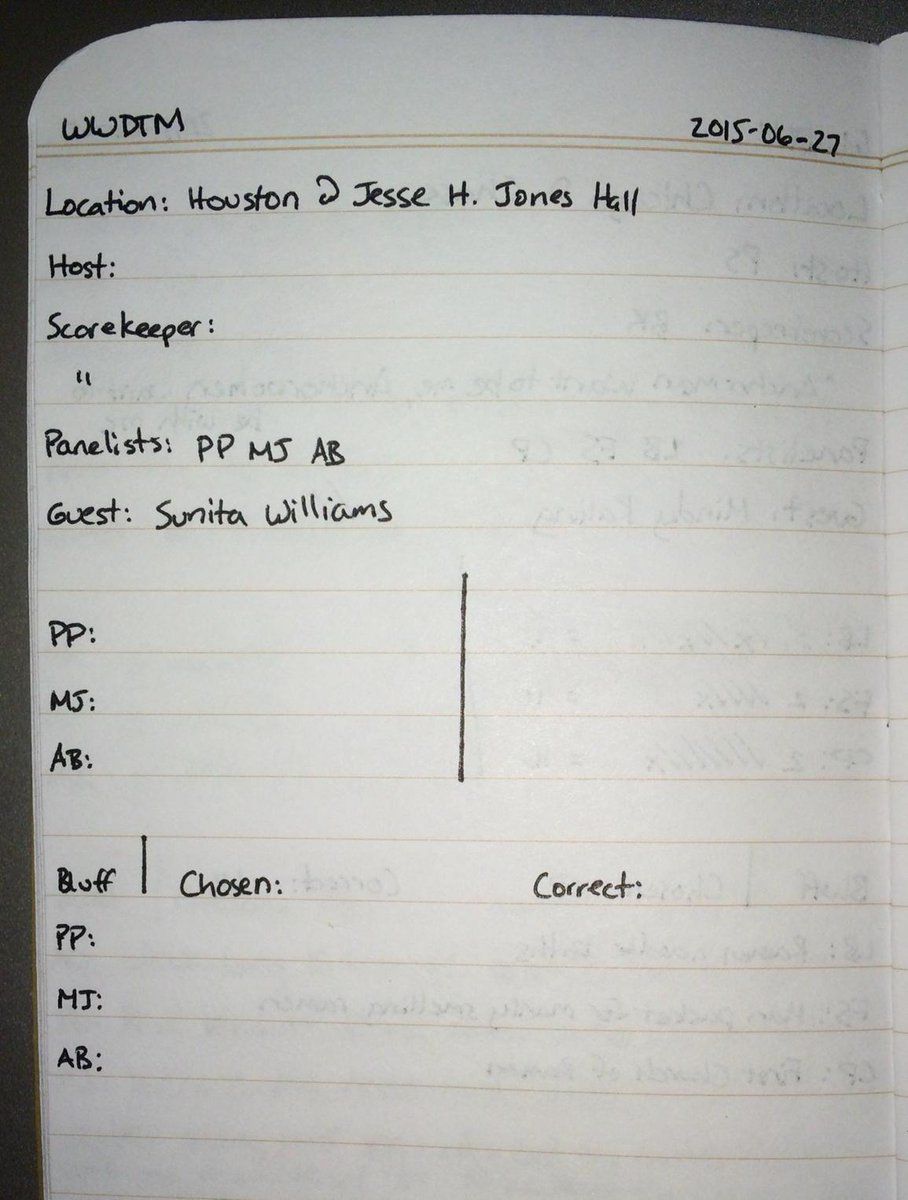 WWDTM 2015-06-27
Location: Houston @ Jesse H. Jones Hall
Host:
Scorekeeper:
"
Panelists: PP MJ AB
Guest: Sunita Williams
PP:
MJ:
AB:
Bluff | Chosen: Correct:
PP:
MJ:
AB: